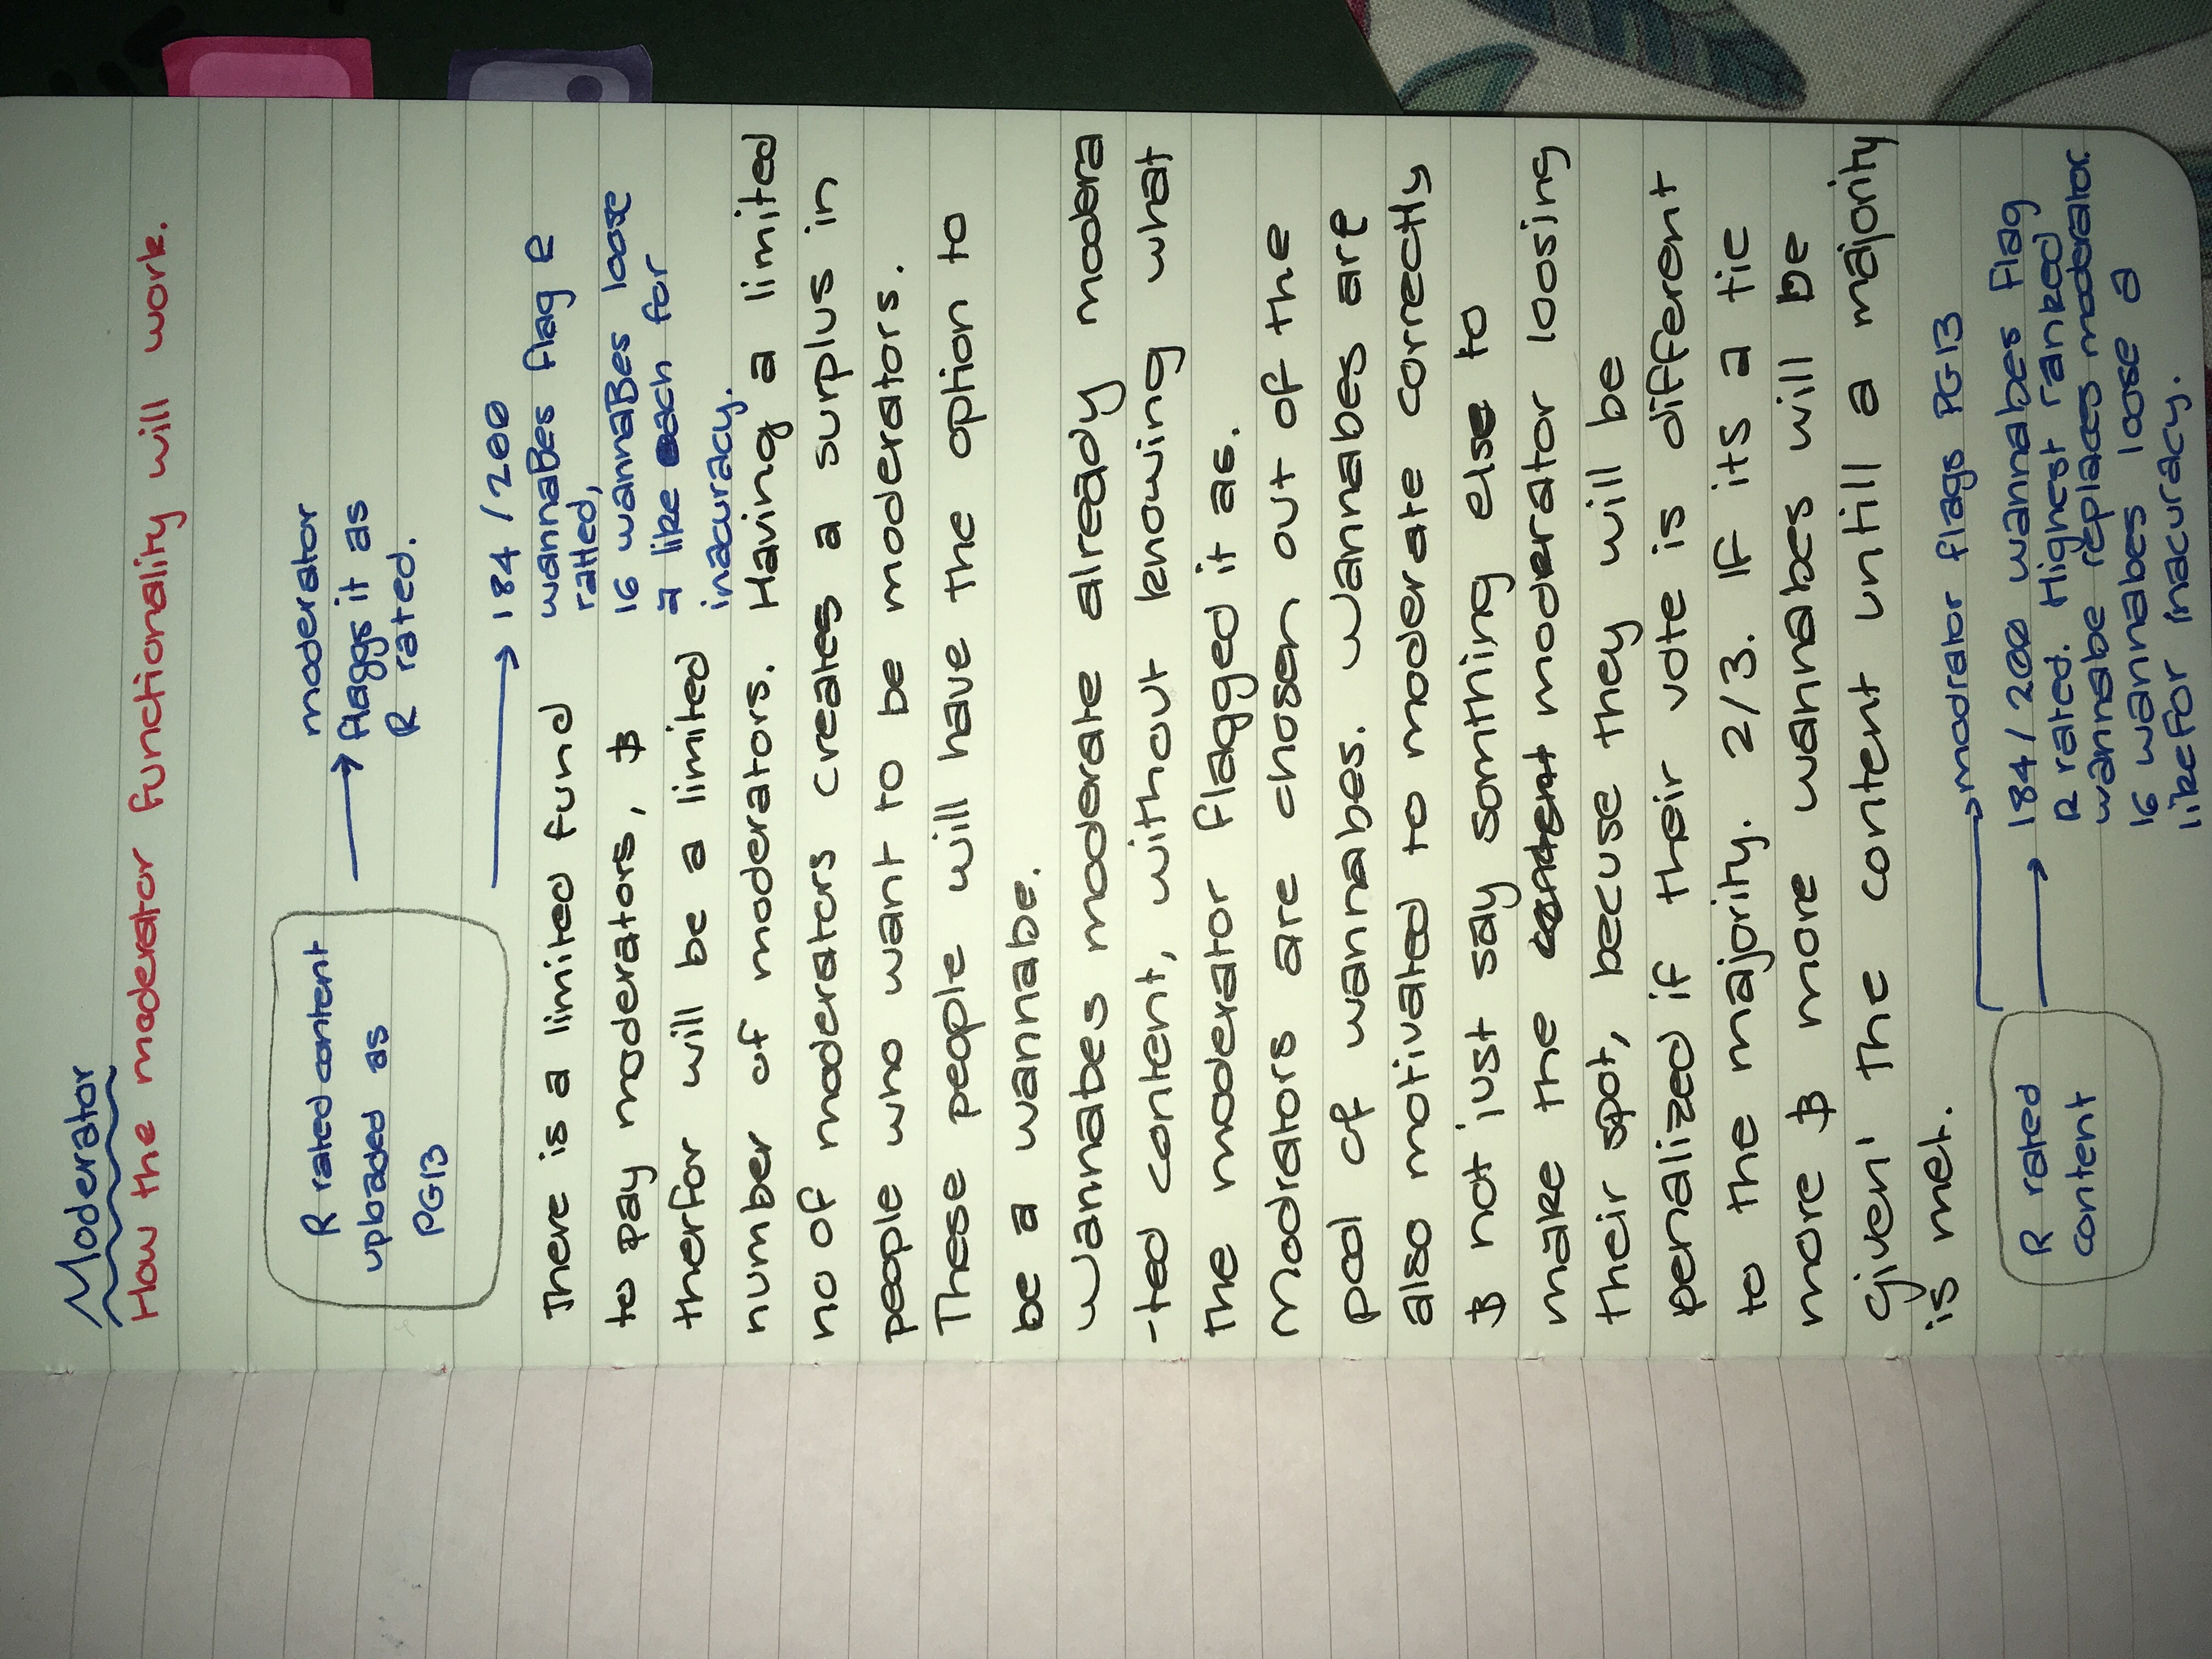 Moderator
How the moderator functionality will work.
R rated content
uploaded as
PG13
moderator
flaggs it as
R rated.
184 / 200
wannaBes flag R
ratted,
16 wannaBes loose
a like each for
inacuracy.
There is a limited fund
to pay moderators, &
therfor will be a limited
number of moderators. Having a limited
no of moderators creates a surplus in
people who want to be moderators.
These people will have the option to
be a wannabe.
Wannabes moderate already modera
-ted content, without knowing what
the moderator flagged it as.
Modrators are chosen out of the
pool of wannabes. Wannabes are
also motivated to moderate correctly
& not just say somthing else to
make the content moderator loosing
their spot, becuse they will be
penalized if their vote is different
to the majority. 2/3. If its a tie
more & more wannabes will be
given' the content untill a majority
is met.
R rated
content
modrator flags PG13
184/200 wannabes flag
R rated. Highest ranked
wannabe replaces moderator.
16 wannabes loose a
like for inacuracy.